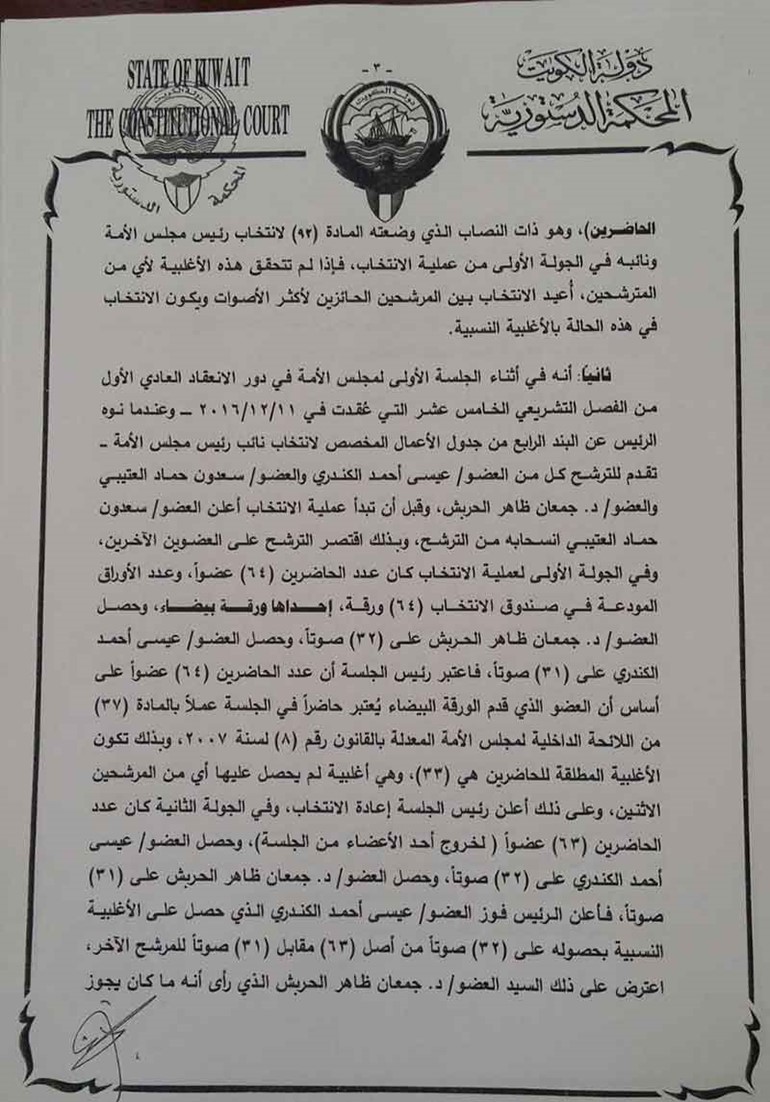 STATE OF KUWAIT
THE CONSTITUTIONAL COURT
- ٣ -
دولة الكويت
المحكمة الدستورية
دولة الكويت
دولة الكويت
المحكمة الدستورية
الحاضرين)، وهو ذات النصاب الذي وضعته المادة (٩٢) لانتخاب رئيس مجلس الأمة
ونائبه في الجولة الأولى من عملية الانتخاب، فإذا لم تتحقق هذه الأغلبية لأي من
المترشحين، أُعيد الانتخاب بين المرشحين الحائزين لأكثر الأصوات ويكون الانتخاب
في هذه الحالة بالأغلبية النسبية.
ثانياً: أنه في أثناء الجلسة الأولى لمجلس الأمة في دور الانعقاد العادي الأول
من الفصل التشريعي الخامس عشر التي عُقدت في ٢٠١٦/١٢/١١ ــ وعندما نوه
الرئيس عن البند الرابع من جدول الأعمال المخصص لانتخاب نائب رئيس مجلس الأمة ــ
تقدم للترشح كل من العضو/ عيسى أحمد الكندري والعضو/ سعدون حماد العتيبي
والعضو/ د. جمعان ظاهر الحربش، وقبل أن تبدأ عملية الانتخاب أعلن العضو/ سعدون
حماد العتيبي انسحابه من الترشح، وبذلك اقتصر الترشح على العضوين الآخرين،
وفي الجولة الأولى لعملية الانتخاب كان عدد الحاضرين (٦٤) عضواً، وعدد الأوراق
المودعة في صندوق الانتخاب (٦٤) ورقة، إحداها ورقة بيضاء، وحصل
العضو/ د. جمعان ظاهر الحربش على (٣٢) صوتاً، وحصل العضو/ عيسى أحمد
الكندري على (٣١) صوتاً، فاعتبر رئيس الجلسة أن عدد الحاضرين (٦٤) عضواً على
أساس أن العضو الذي قدم الورقة البيضاء يُعتبر حاضراً في الجلسة عملاً بالمادة (٣٧)
من اللائحة الداخلية لمجلس الأمة المعدلة بالقانون رقم (٨) لسنة ٢٠٠٧، وبذلك تكون
الأغلبية المطلقة للحاضرين هي (٣٣)، وهي أغلبية لم يحصل عليها أي من المرشحين
الاثنين، وعلى ذلك أعلن رئيس الجلسة إعادة الانتخاب، وفي الجولة الثانية كان عدد
الحاضرين (٦٣) عضواً ( لخروج أحد الأعضاء من الجلسة)، وحصل العضو/ عيسى
أحمد الكندري على (٣٢) صوتاً، وحصل العضو/ د. جمعان ظاهر الحربش على (٣١)
صوتاً، فأعلن الرئيس فوز العضو/ عيسى أحمد الكندري الذي حصل على الأغلبية
النسبية بحصوله على (٣٢) صوتاً من أصل (٦٣) مقابل (٣١) صوتاً للمرشح الآخر،
اعترض على ذلك السيد العضو/ د. جمعان ظاهر الحربش الذي رأى أنه ما كان يجوز